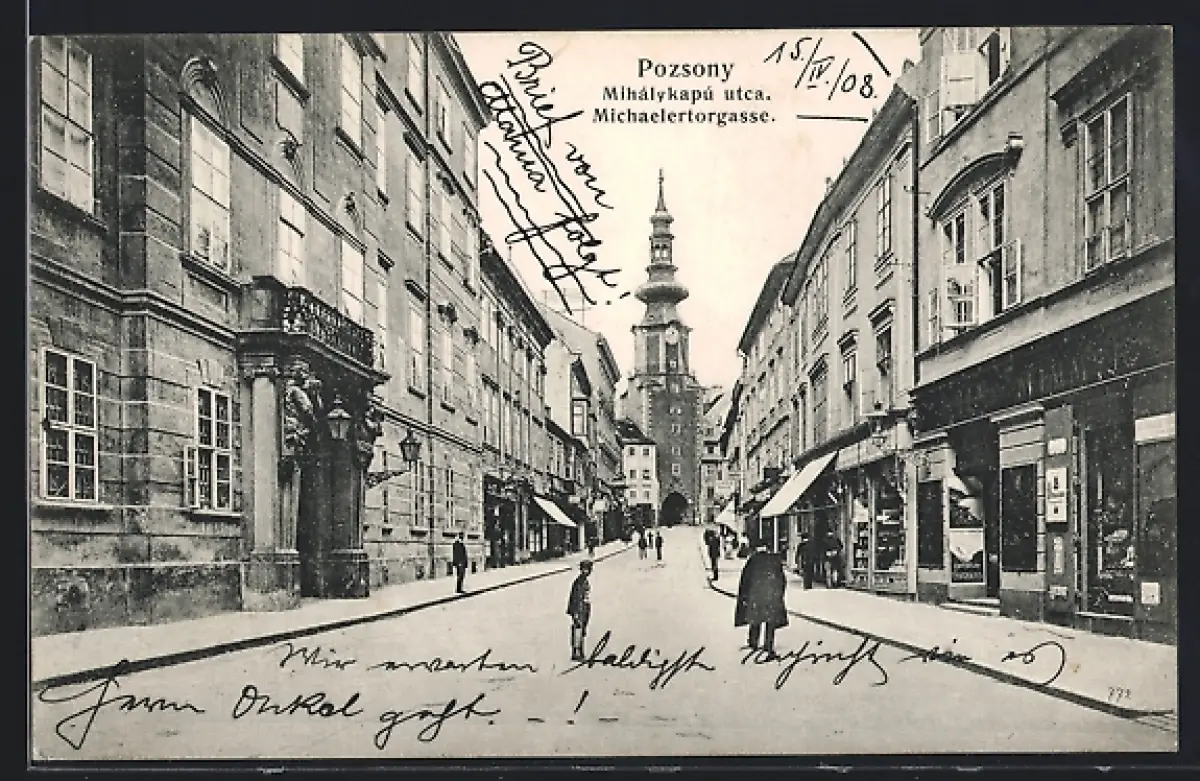 Pozsony
Mihálykapú utca.
Michaelertorgasse.
15/IV./08.
Brief von
folgt!
Wir erwarten baldigste Nachricht wie es
Herrn Onkel geht. – !
772